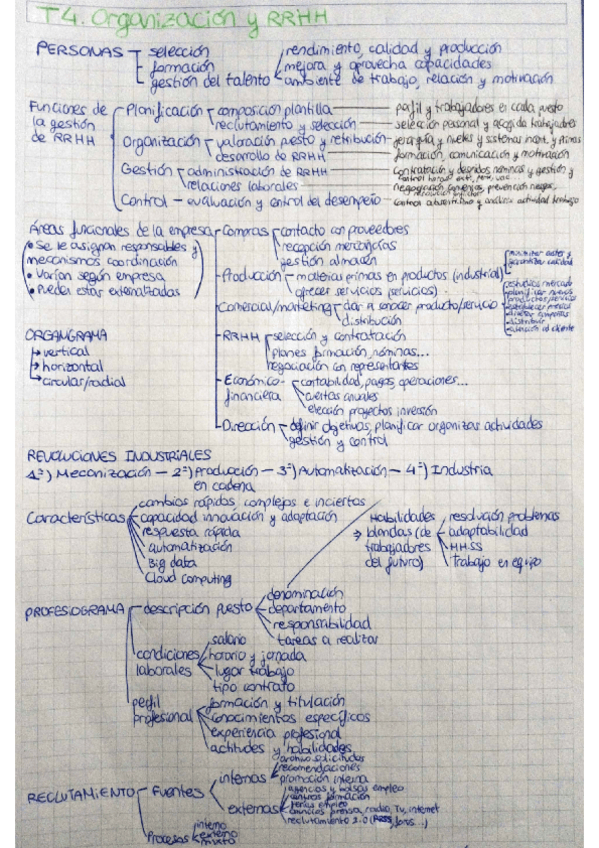 T4. Organización y RRHH
PERSONAS selección rendimiento, calidad y producción
formación mejora y aprovecha capacidades
gestión del talento ambiente de trabajo, relación y motivación
Funciones de la gestión de RRHH
Planificación composición plantilla perfil y trabajadores en cada puesto
reclutamiento y selección selección personal y acogida trabajadores
Organización valoración puesto y retribución jerarquía y niveles y sistemas
desarrollo de RRHH formación, comunicación y motivación
Gestión administración de RRHH contratación y despidos nóminas y gestión y
relaciones laborales negociación convenios, prevención riesgos
Control evaluación y control del desempeño control y análisis actividad trabajo
Áreas funcionales de la empresa
• Se le asignan responsables y mecanismos coordinación
• Varían según empresa
• Pueden estar externalizadas
Compras contacto con proveedores
recepción mercancías
gestión almacén
Producción materias primas en productos (industrial)
ofrecer servicios (servicios)
garantizar calidad
Comercial/marketing dar a conocer producto/servicio
distribución
estudios mercado
planificar nuevos
productos/servicios
establecer precios
distribuir
atención al cliente
RRHH selección y contratación
planes formación, nóminas...
negociación con representantes
Económico-financiera contabilidad, pagos, operaciones...
cuentas anuales
elección proyectos inversión
Dirección definir objetivos, planificar organizar actividades
gestión y control
ORGANIGRAMA
vertical
horizontal
circular/radial
REVOLUCIONES INDUSTRIALES
1ª) Mecanización — 2ª) Producción — 3ª) Automatización — 4ª) Industria
en cadena
Características cambios rápidos, complejos e inciertos
capacidad innovación y adaptación
respuesta rápida
automatización
Big data
Cloud computing
Habilidades blandas (de trabajadores del futuro)
resolución problemas
adaptabilidad
HH.SS
Trabajo en equipo
PROFESIOGRAMA descripción puesto
denominación
departamento
responsabilidad
tareas a realizar
condiciones laborales
salario
horario y jornada
lugar trabajo
tipo contrato
perfil profesional
formación y titulación
conocimientos específicos
experiencia profesional
actitudes y habilidades
RECLUTAMIENTO Fuentes
internas
archivo solicitudes
recomendaciones
promoción interna
externas
agencias y bolsas empleo
centros formación
ferias empleo
anuncios prensa, radio, TV, internet
reclutamiento 2.0 (RRSS, foros...)
Procesos
interno
externo
mixto